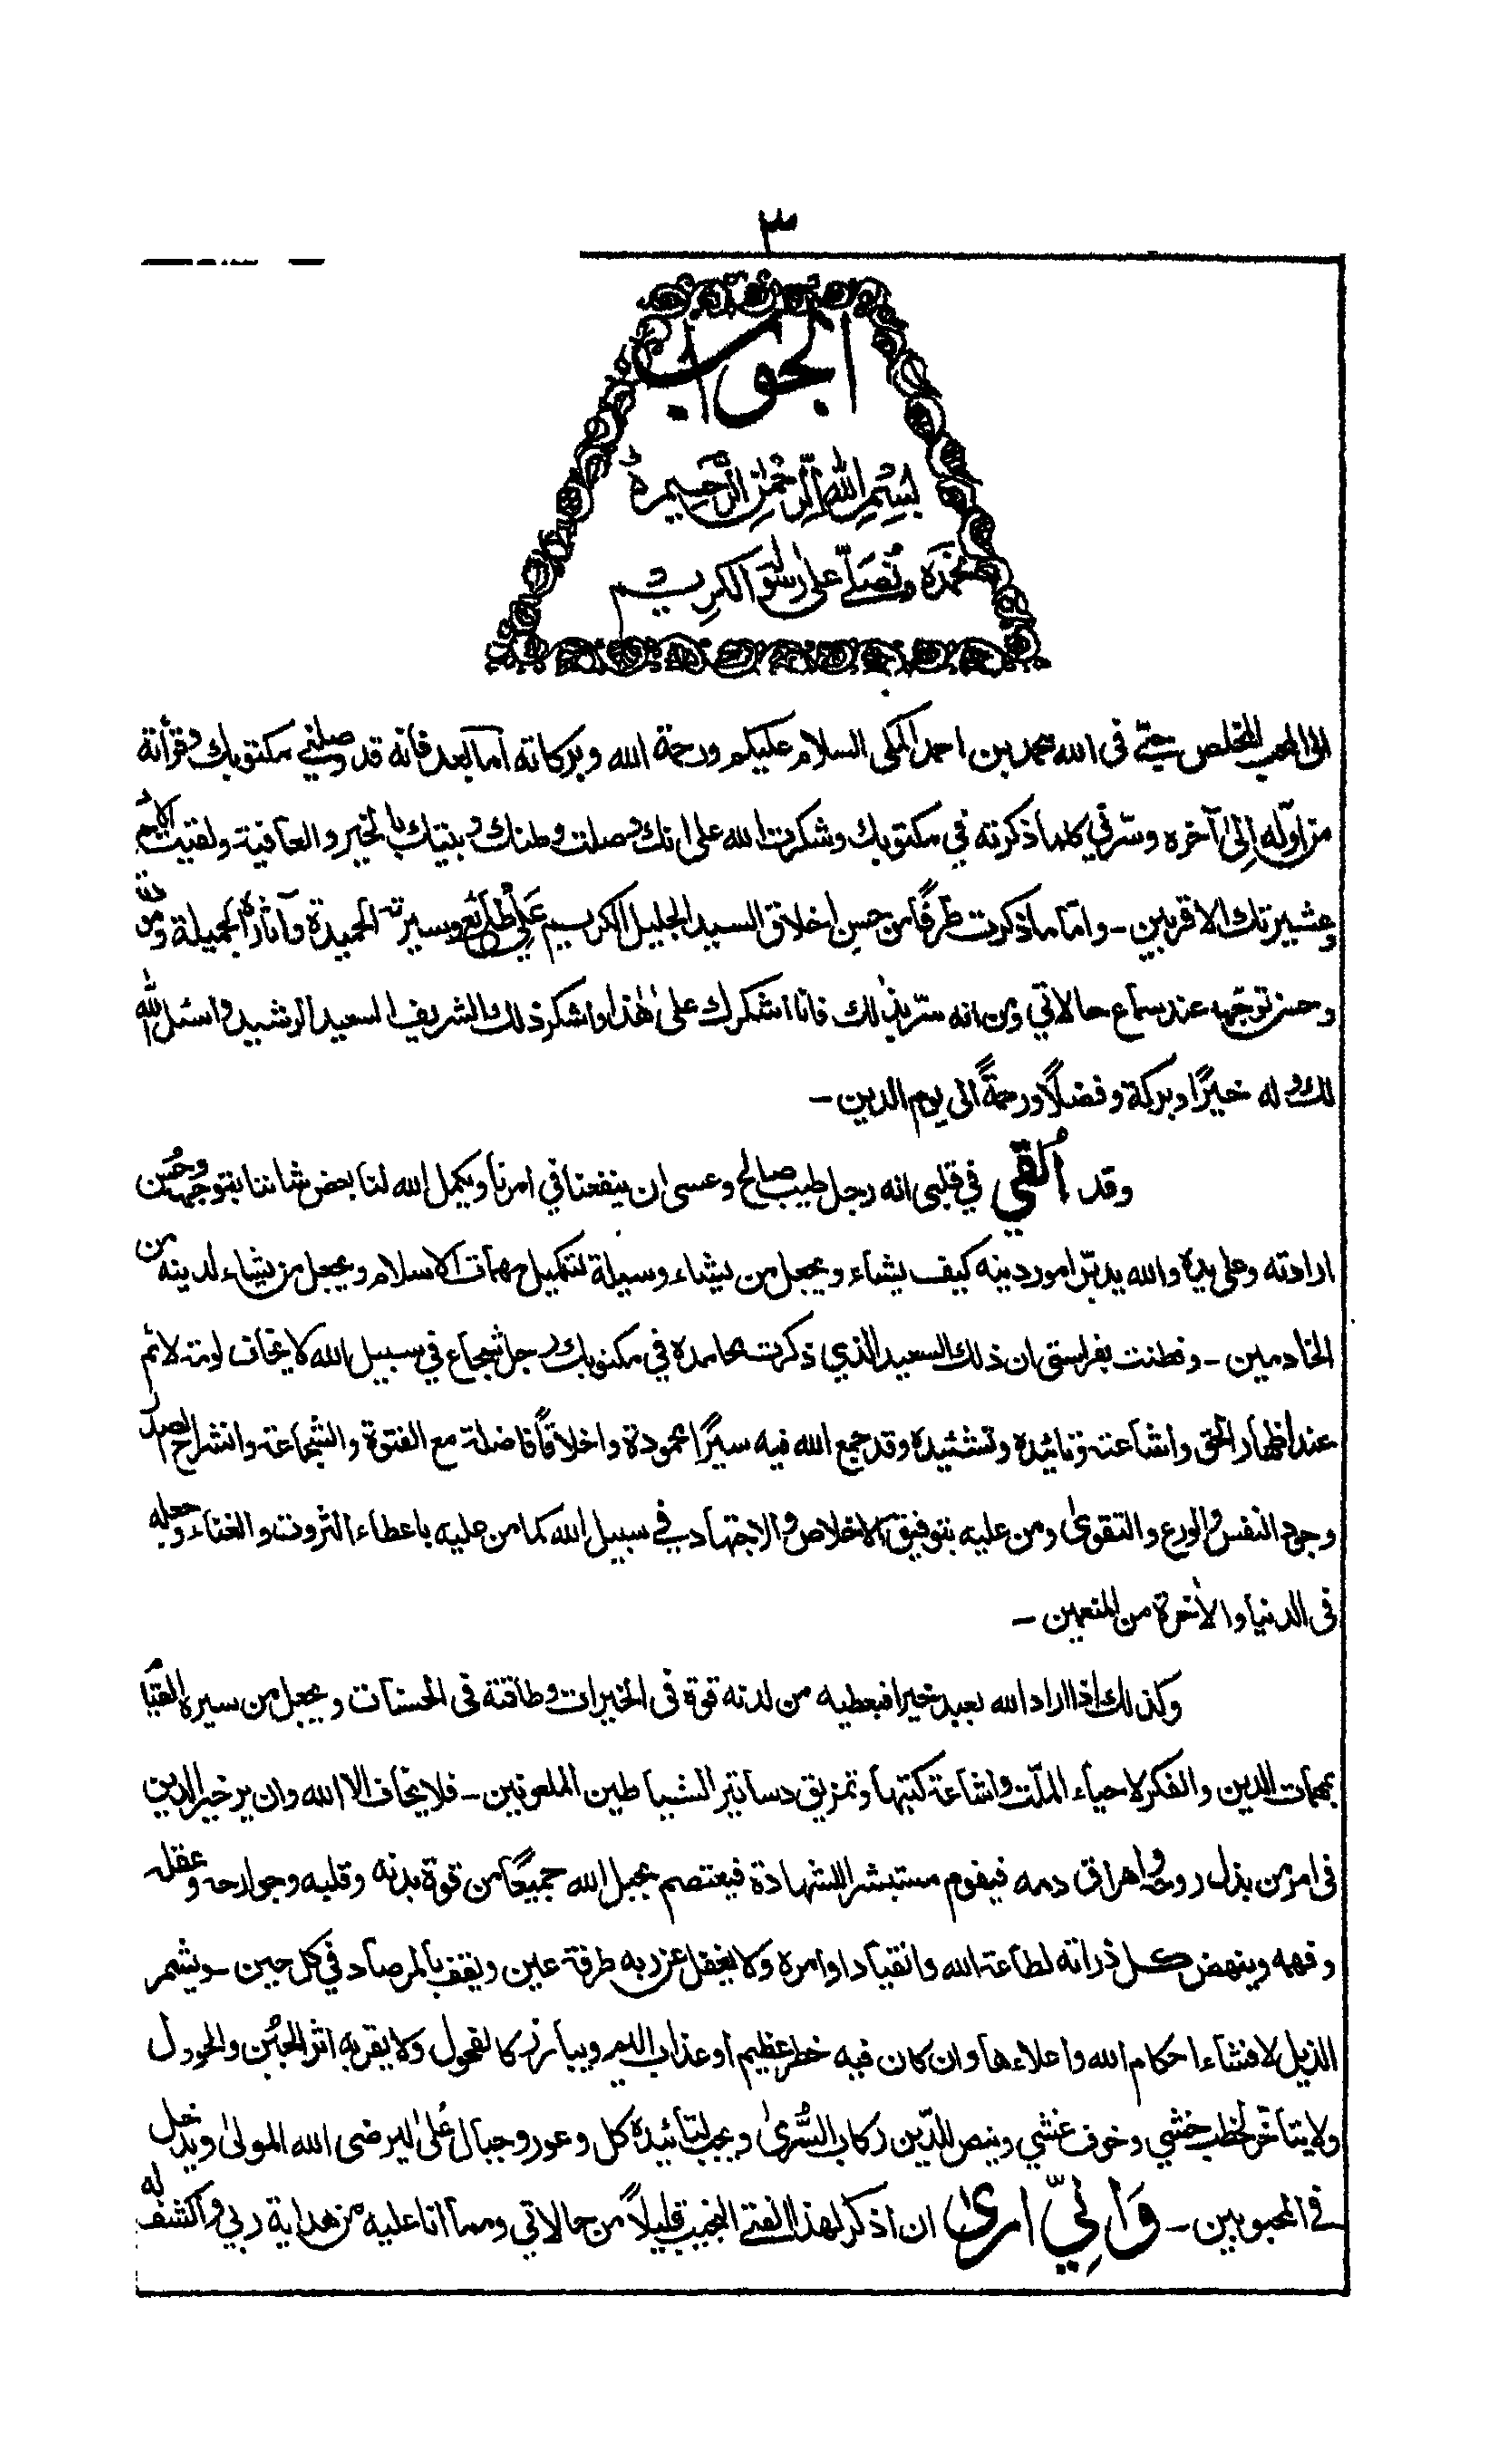 ٣
الجواب
بِسْمِ اللهِ الرَّحْمٰنِ الرَّحِيْمِ
نَحْمَدُهٗ وَنُصَلِّيْ عَلٰى رَسُوْلِهِ الْكَرِيْم
الى المحب المخلص حِبّي فى الله محمد بن احمد المكى السلام عليكم ورحمة الله وبركاته اما بعد فانه قد وصلني مكتوبك وقرأته
من اوّله اِلىٰ آخره وسّرني كلما ذكرته في مكتوبك وشكرت الله على انك وصلت وطنك وبيتك بالخير والعافية ولقيت الاحبّ
وعشيرتك الاقربين ـ وامّا ما ذكرت طرفًا من حسن اخلاق السيد الجليل الكريم علي طايع وسيرته الحميدة وآثاره الجميلة ومودّته
وحسن توجّهه عند سماع حالاتي ومن انه سرّ بذٰلك فانا اشكرك على هٰذا واشكر ذلك الشريف السعيد الرشيد واسئل الله
لك وله خيرًا وبركة وفضلًا ورحمةً الى يوم الدين ـ
وقد اُلقي في قلبى انه رجل طيب صالح وعسى ان ينفعنا في امرنا ويكمل الله لنا بعض شاننا بتوجهه وحُسن
ارادته وعلى يده والله يدبّر امور دينه كيف يشاء ويجعل من يشاء وسيلة لتكميل مهمات الاسلام ويجعل من يشاء لدينه من
الخادمين ـ وفطنت بفراستى ان ذلك السعيد الذي ذكرت محامده في مكتوبك رجل شجاع في سبيل الله لا يخاف لومة لائم
عند اظهار الحق واشاعته وتائيده وتشئيده وقد جمع الله فيه سيرًا محمودة واخلاقًا فاضلة مع الفتوة والشجاعة وانشراح الصدر
وجود النفس والورع والتقوىٰ ومن عليه بتوفيق الاخلاص والاجتهاد في سبيل الله كما من عليه باعطاء الثروت والغناء وجعله
فى الدنيا والآخرة من المنعمين ـ
وكذلك اذا اراد الله بعبد خيرا فيعطيه من لدنه قوة فى الخيرات وطاقة فى الحسنات ويجعل من سيره القيام
بمهمات الدين والفكر لاحياء الملّت واشاعة كتبها وتمزيق دساتير الشياطين الملعونين ـ فلا يخاف الا الله وان ير خير الدين
فى امر من بذل روحه واهراق دمه فيقوم مستبشرا للشهادة فيعتصم بحبل الله جميعًا من قوة بدنه وقلبه وجوارحه وعقله
وفهمه وينهض كل ذراته لطاعة الله وانقياد اوامره ولا يغفل عن ربه طرفة عين ويقف بالمرصاد في كل حين ـ ويشمر
الذيل لافشاء احكام الله واعلاءها وان كان فيه خطر عظيم او عذاب اليم ويبارز كالفحول ولا يقربه اثر الجُبن والحودل
ولا يتأخّر لخطب خشي وخوف غشي وينص للدّين ركاب السُّرىٰ ويجب لتائيده كل وعور وجبال عُلىٰ ليرضى الله المولىٰ ويدخل
في المحبوبين ـ وَاِنِّيْ ارىٰ ان اذكر لهذا الفتى النجيب قليلًا من حالاتي ومما انا عليه من هداية ربي واكشف له